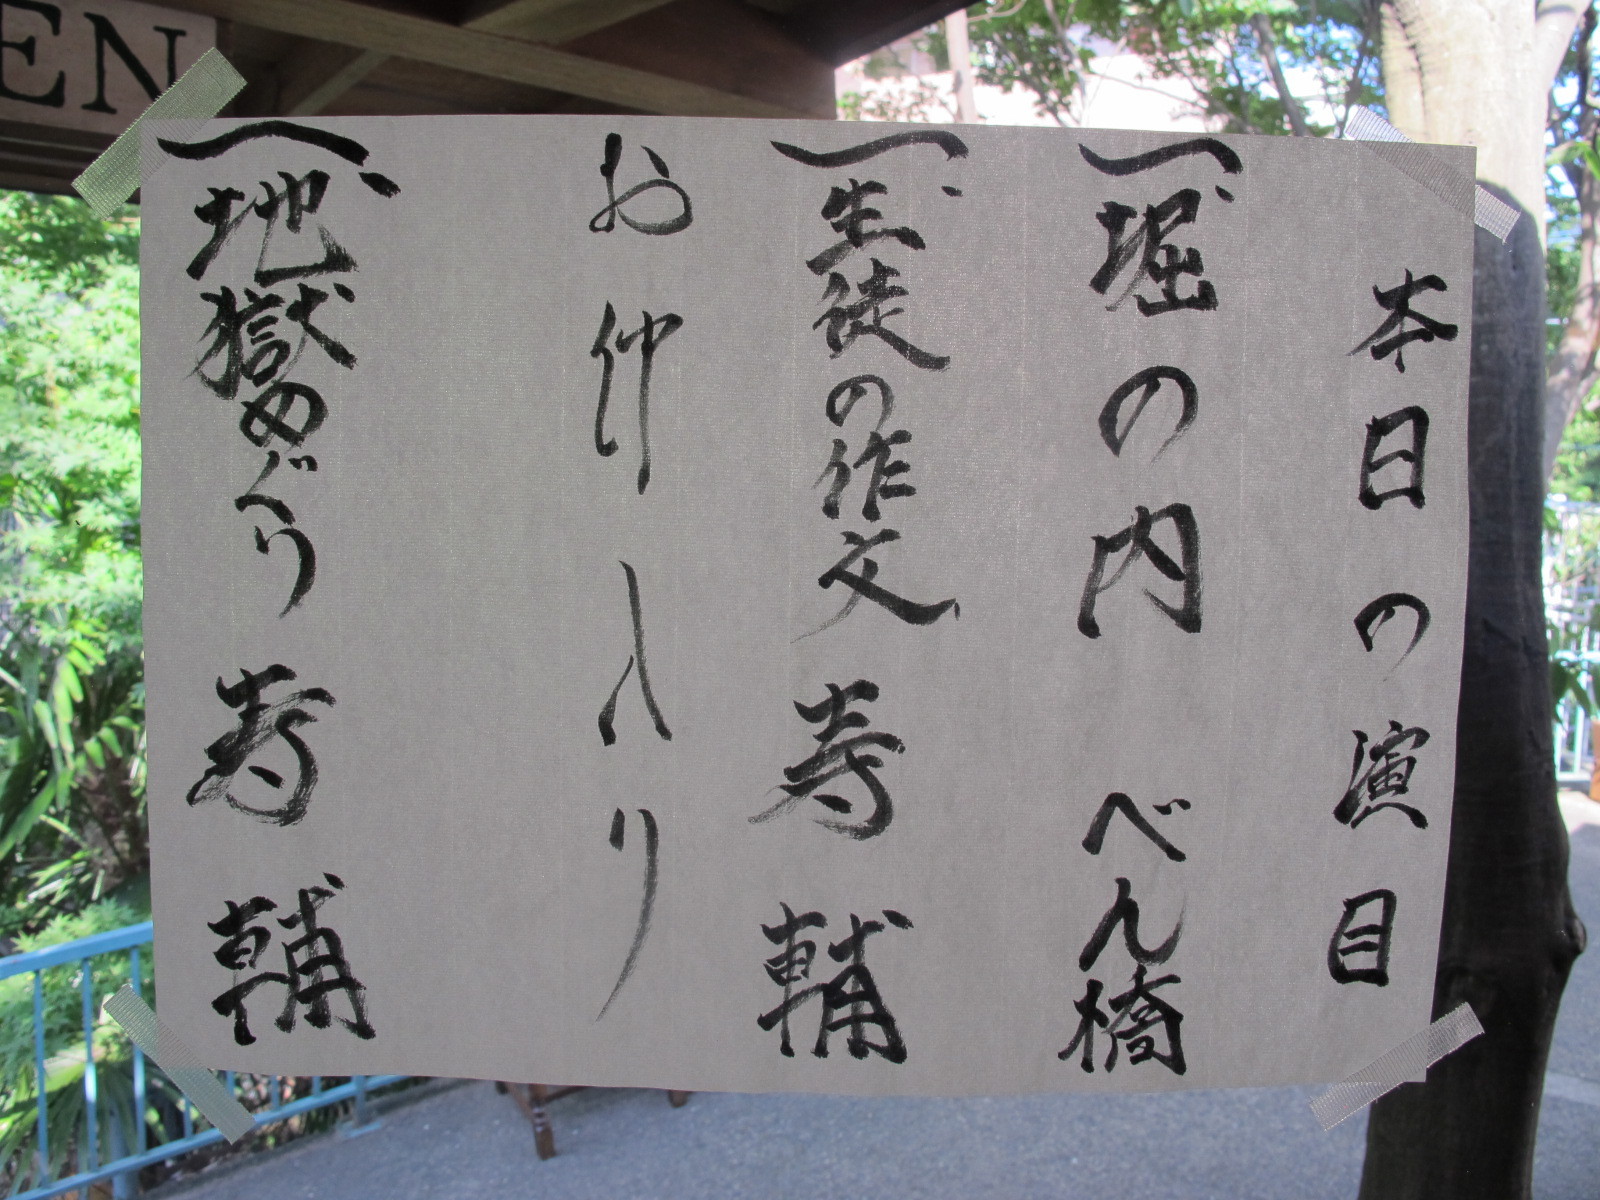 本日の演目
一、堀の内 べん橋
一、生徒の作文 寿輔
お仲入り
一、地獄めぐり 寿輔
EN